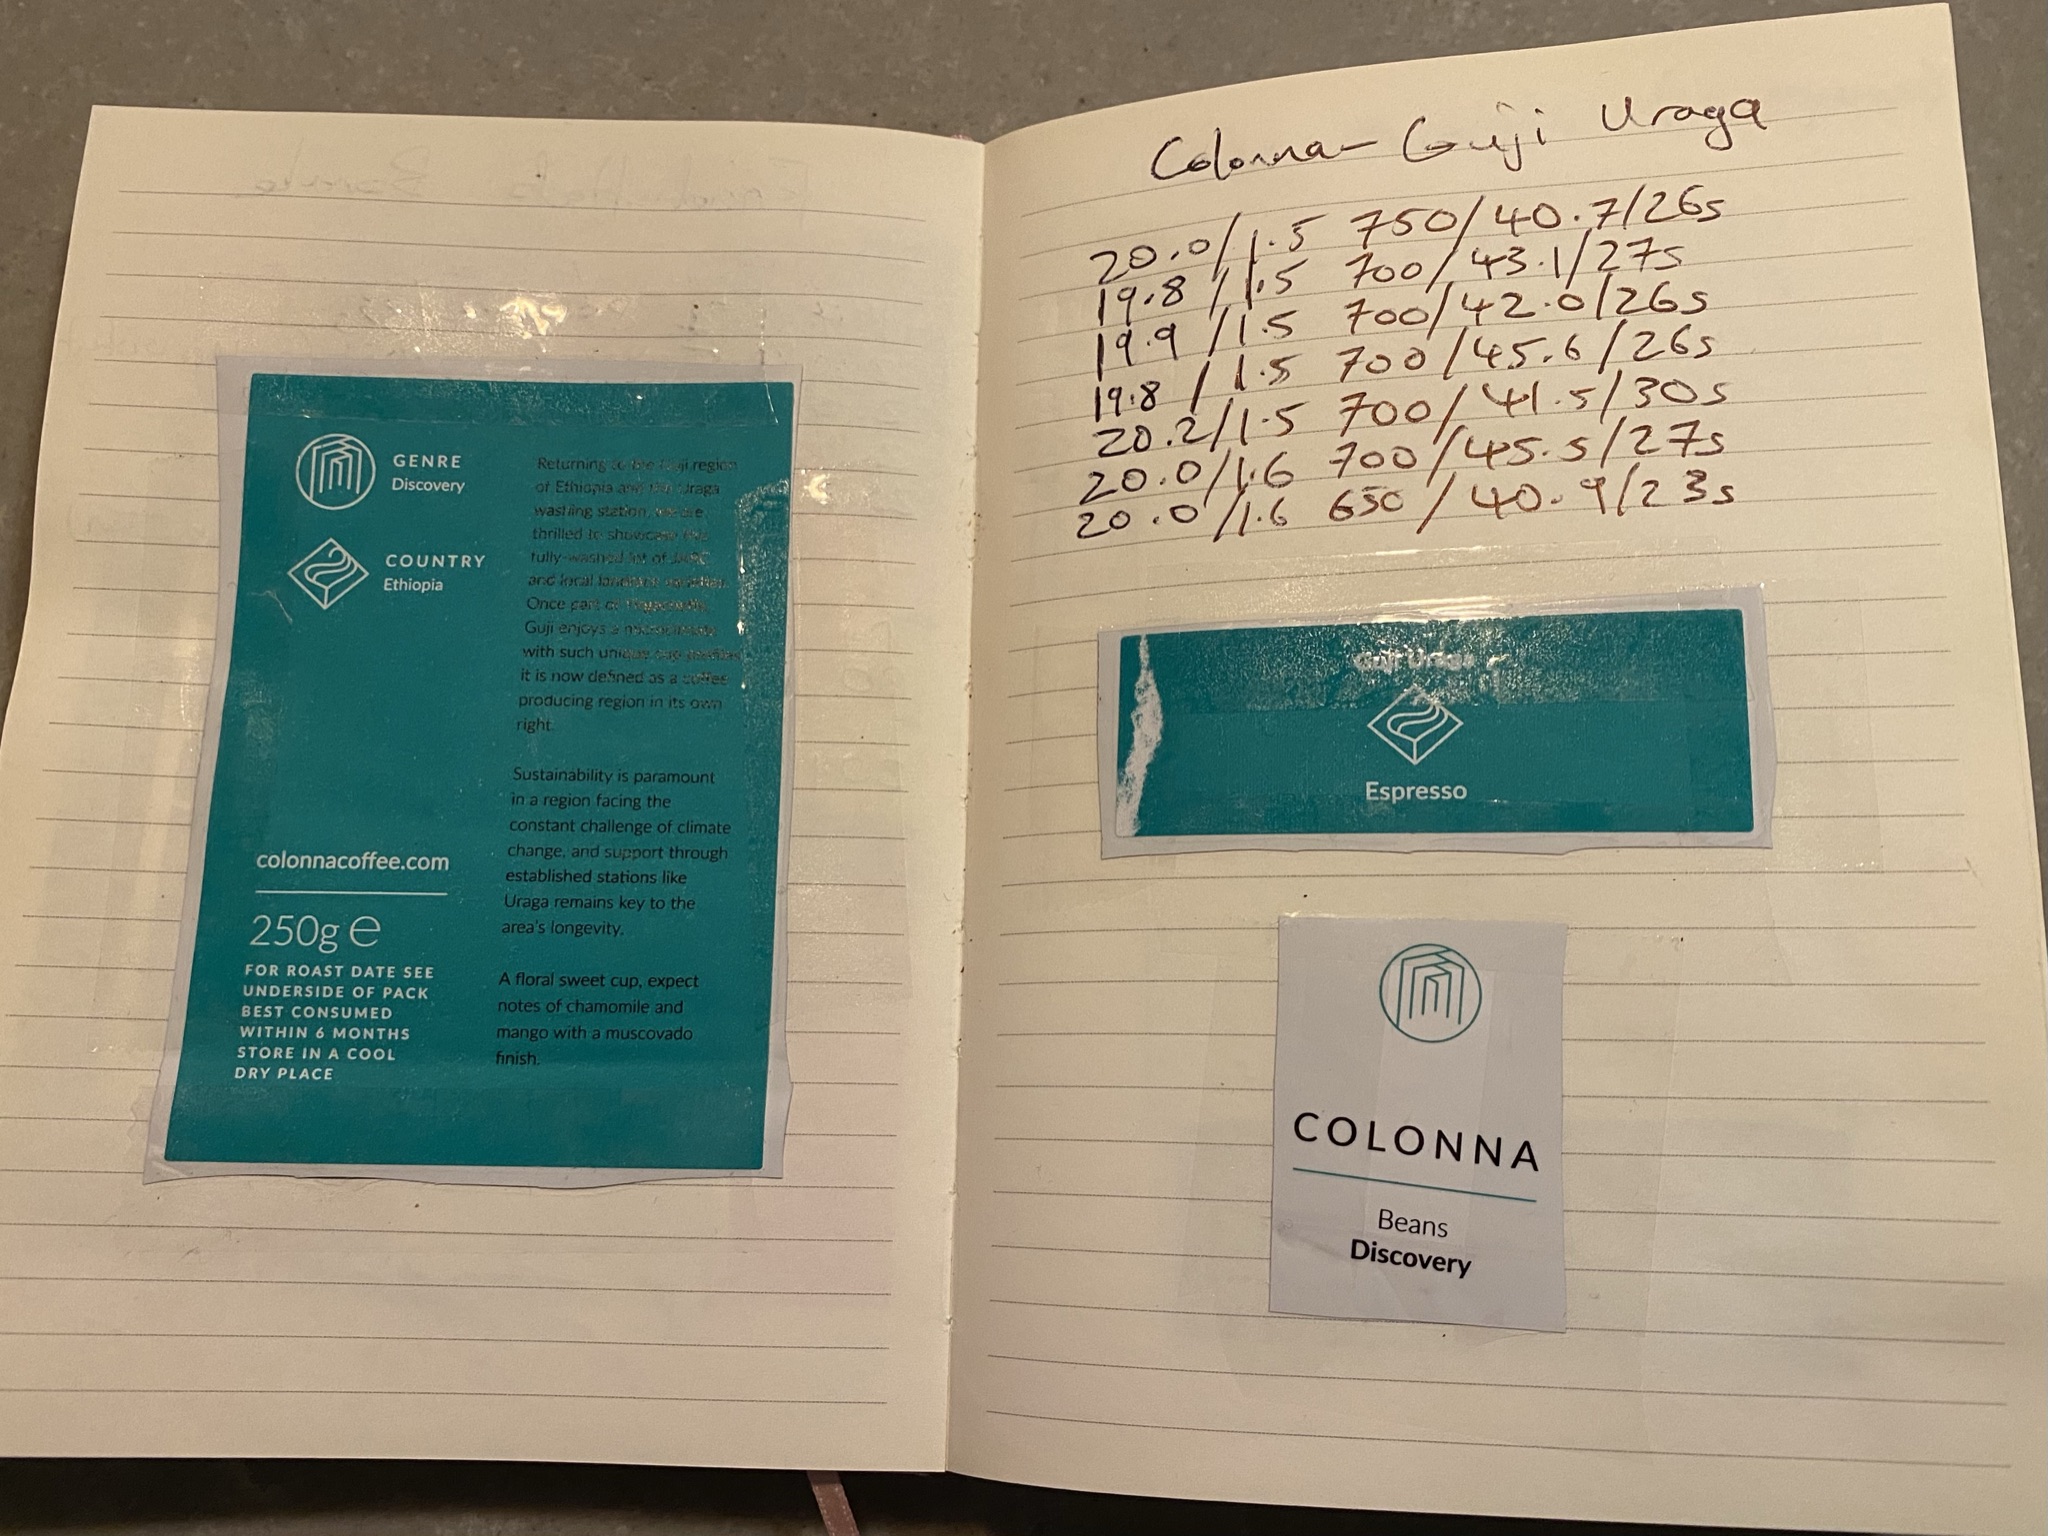 GENRE
Discovery
COUNTRY
Ethiopia
colonnacoffee.com
250g ℮
FOR ROAST DATE SEE
UNDERSIDE OF PACK
BEST CONSUMED
WITHIN 6 MONTHS
STORE IN A COOL
DRY PLACE
Returning to the Guji region
of Ethiopia and the Uraga
washing station, we're
thrilled to showcase this
fully-washed lot of JARC
and local landrace varieties.
Once part of Yirgacheffe,
Guji enjoys a microclimate
with such unique cup profiles
it is now defined as a coffee
producing region in its own
right.
Sustainability is paramount
in a region facing the
constant challenge of climate
change, and support through
established stations like
Uraga remains key to the
area's longevity.
A floral sweet cup, expect
notes of chamomile and
mango with a muscovado
finish.
Colonna - Guji Uraga
20.0/1.5 750/40.7/26s
19.8/1.5 700/43.1/27s
19.9/1.5 700/42.0/26s
19.8/1.5 700/45.6/26s
20.2/1.5 700/41.5/30s
20.0/1.6 700/45.5/27s
20.0/1.6 650/40.9/23s
Guji Uraga
Espresso
COLONNA
Beans
Discovery